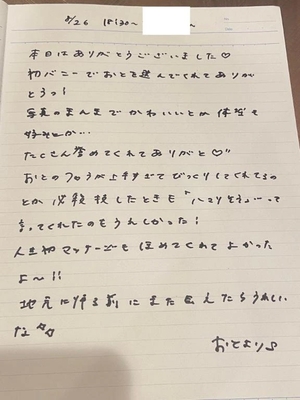 8/26 18:30〜
本日はありがとうございました♡
初バニーでおとを選んでくれてありが
とうっ!
写真のまんまでかわいいとか体型も
好きとか…
たくさん褒めてくれてありがと♡
おとのフェラが上手すぎてびっくりしてくれてるの
とか 披露したときも「ハマりそう…って
言ってくれたのもうれしかった!
人生初マッサージも ほめてくれてよかった
よ〜!!
地元に帰る前にまた会えたらうれしい
な
おとより